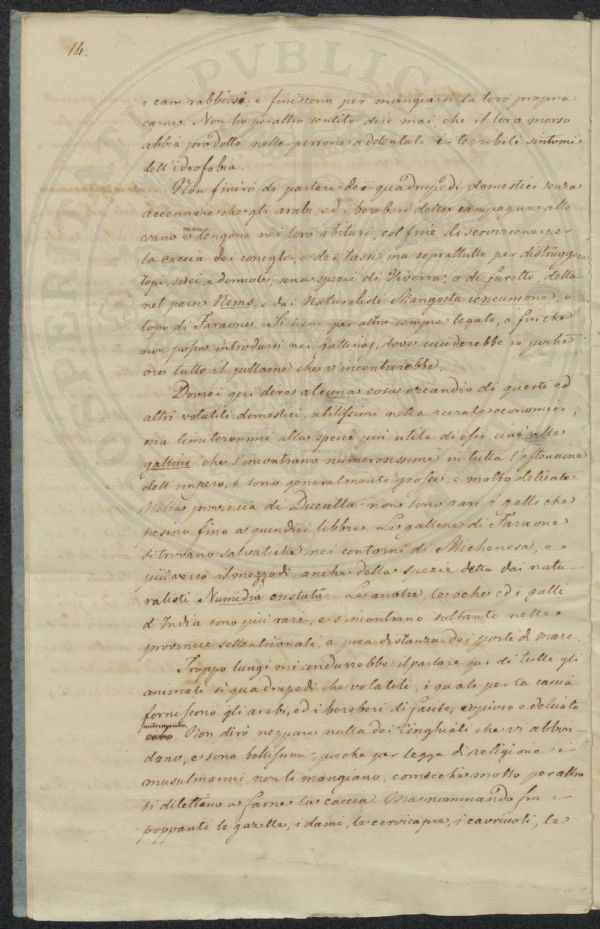 14.
i cani rabbiosi, e finiscono per mangiarsi la loro propria
carne. Non ho peraltro sentito dire mai che il loro morso
abbia prodotto nelle persone addentate i terribili sintomi
dell'idrofobia.
Non finirò di parlare dei quadrupedi domestici senza
accennare che gli arabi, ed i bereberi della campagna alle
vano e tengono nei loro abituri, col fine di servirsene per
la caccia dei conigli, e dei tassi, ma soprattutto per distrugger
topi, sorci, e donnole, una specie di Viverra, o di furetto detta
nel paese Nems, e dai Naturalisti Mangosta icneumone, o
topo di Faraone. Si tiene per altro sempre legato, a fin che
non possa introdursi nei gallinaj, dove ucciderebbe in poche
ore tutto il pollame che vi incontrerebbe.
Dovrei qui dire alcuna cosa eziandio di questi ed
altri volatili domestici, utilissimi nella rurale economia;
ma limiterommi alla specie più utile di essi cioè alle
galline, che s'incontrano numerosissime in tutta l'estensione
dell'impero, e sono generalmente grosse, e molto delicate.
Nella provincia di Ducalla non sono rari i galli che
pesino fino a quindici libbre. Le galline di Faraone
si trovano salvatiche nei contorni di Michenesa, e
più verso il mezzodì, anche della specie detta dai natu-
ralisti Numidia cristata. Le anatre, le oche ed i galli
d'India sono più rari, e s'incontrano soltanto nelle
provincie settentrionali, a poca distanza dei porti di mare.
Troppo lungi mi condurrebbe il parlare qui di tutti gli
animali sì quadrupedi che volatili, i quali per la caccia
forniscono gli arabi, ed i bereberi di sano, copioso e delicato
nutrimento. Non dirò neppure nulla dei Cinghiali che vi abbon-
dano, e sono bellissimi, poichè per legge di religione i
musulmanni non li mangiano, comecchè molto per altro
si dilettino a farne la caccia. Ma nominando fra i
poppanti le gazelle, i daini, le cervicapre, i cavriuoli, le